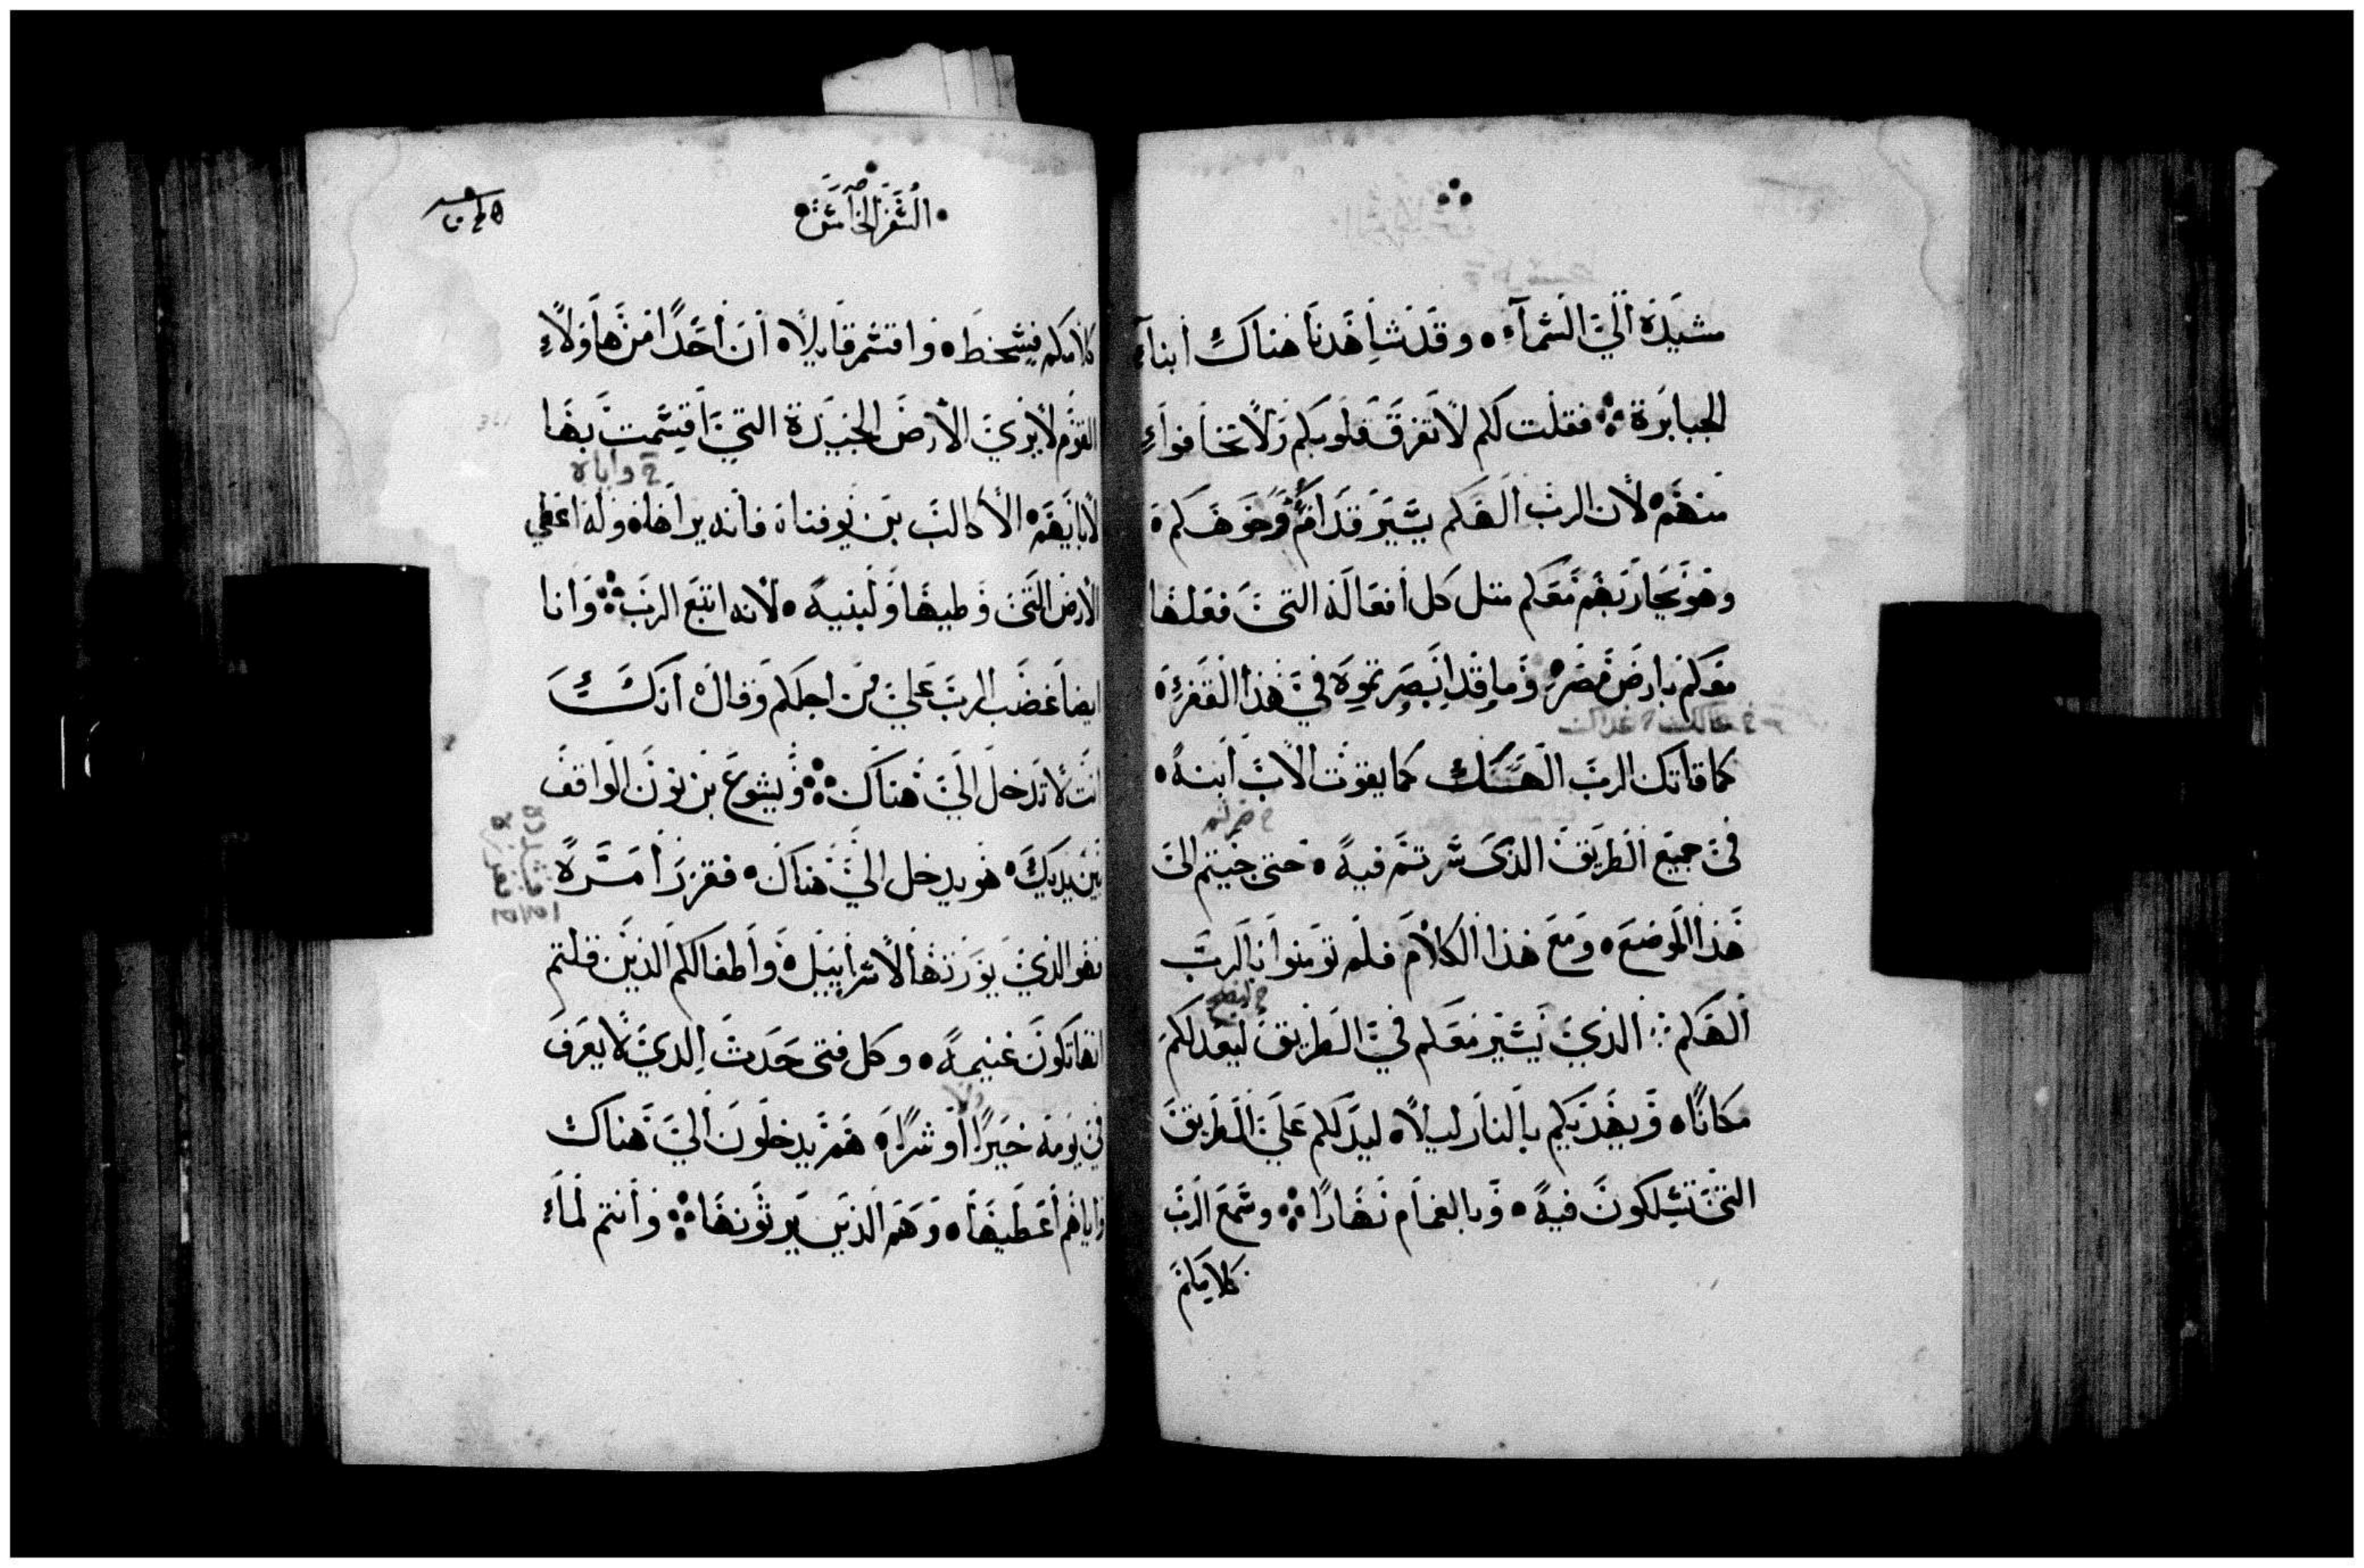 مشيدة الي السمآء ٠ وقد شاهدنا هناك أبناء
الجبابرة ∴ فقلت لكم لا تفزق قلوبكم ولا تخافوا
منهم ٠ لان الرب الهكم يسير قدامكم
وهو يحاربهم معكم مثل كل أفعاله التي فعلها
معكم بارض مصر ٠ وما قد ابصرتموه في هذا القفر ٠
كما قاتك الرب الهك كما يقوت الاب ابنه ٠
خ ضرتم
في جميع الطريق الذي سرتم فيه ٠ حتى جيتم الى
هذا الموضع ٠ ومع هذا الكلام فلم تومنوا بالرب
خ ليصلح
الهكم ∴ الذي يسير معكم في الطريق ليعد لكم
مكانًا ٠ ويهديكم بالنار ليلاً ٠ ليدلكم علي الطريق
التي تسلكون فيه ٠ وبالغمام نهارًا ∴ وسمع الرب
كلامكم
السفر الخامس
كلامكم فسخط ٠ واقسم قايلاً ٠ ان أحدًا من هاولاء
القوم لا يري الارض الجيدة التي اقسمت بها
خ واياه
لابايهم ٠ الا كالب بن يوفنا ٠ فانه يراها ٠ وله اعطي
الارض التي وطيها ولبنيه ٠ لانه اتبع الرب ∴ وانا
ايضا غضب الرب علي من اجلكم وقال ٠ انك
انت لا تدخل الي هناك ∴ ويشوع بن نون الواقف
بين يديك ٠ هو يدخل الي هناك ٠ فقرر أمره
فهو الذي يورثها لاسراييل ٠ وأطفالكم الذين قلتم
انها تكون غنيمة ٠ وكل فتى حدث الذي لا يعرف
ولا
في يومه خيرًا أو شرًا ٠ هم يدخلون الي هناك
واياهم أعطيها ٠ وهم الذين يرثونها ∴ وأنتم لما